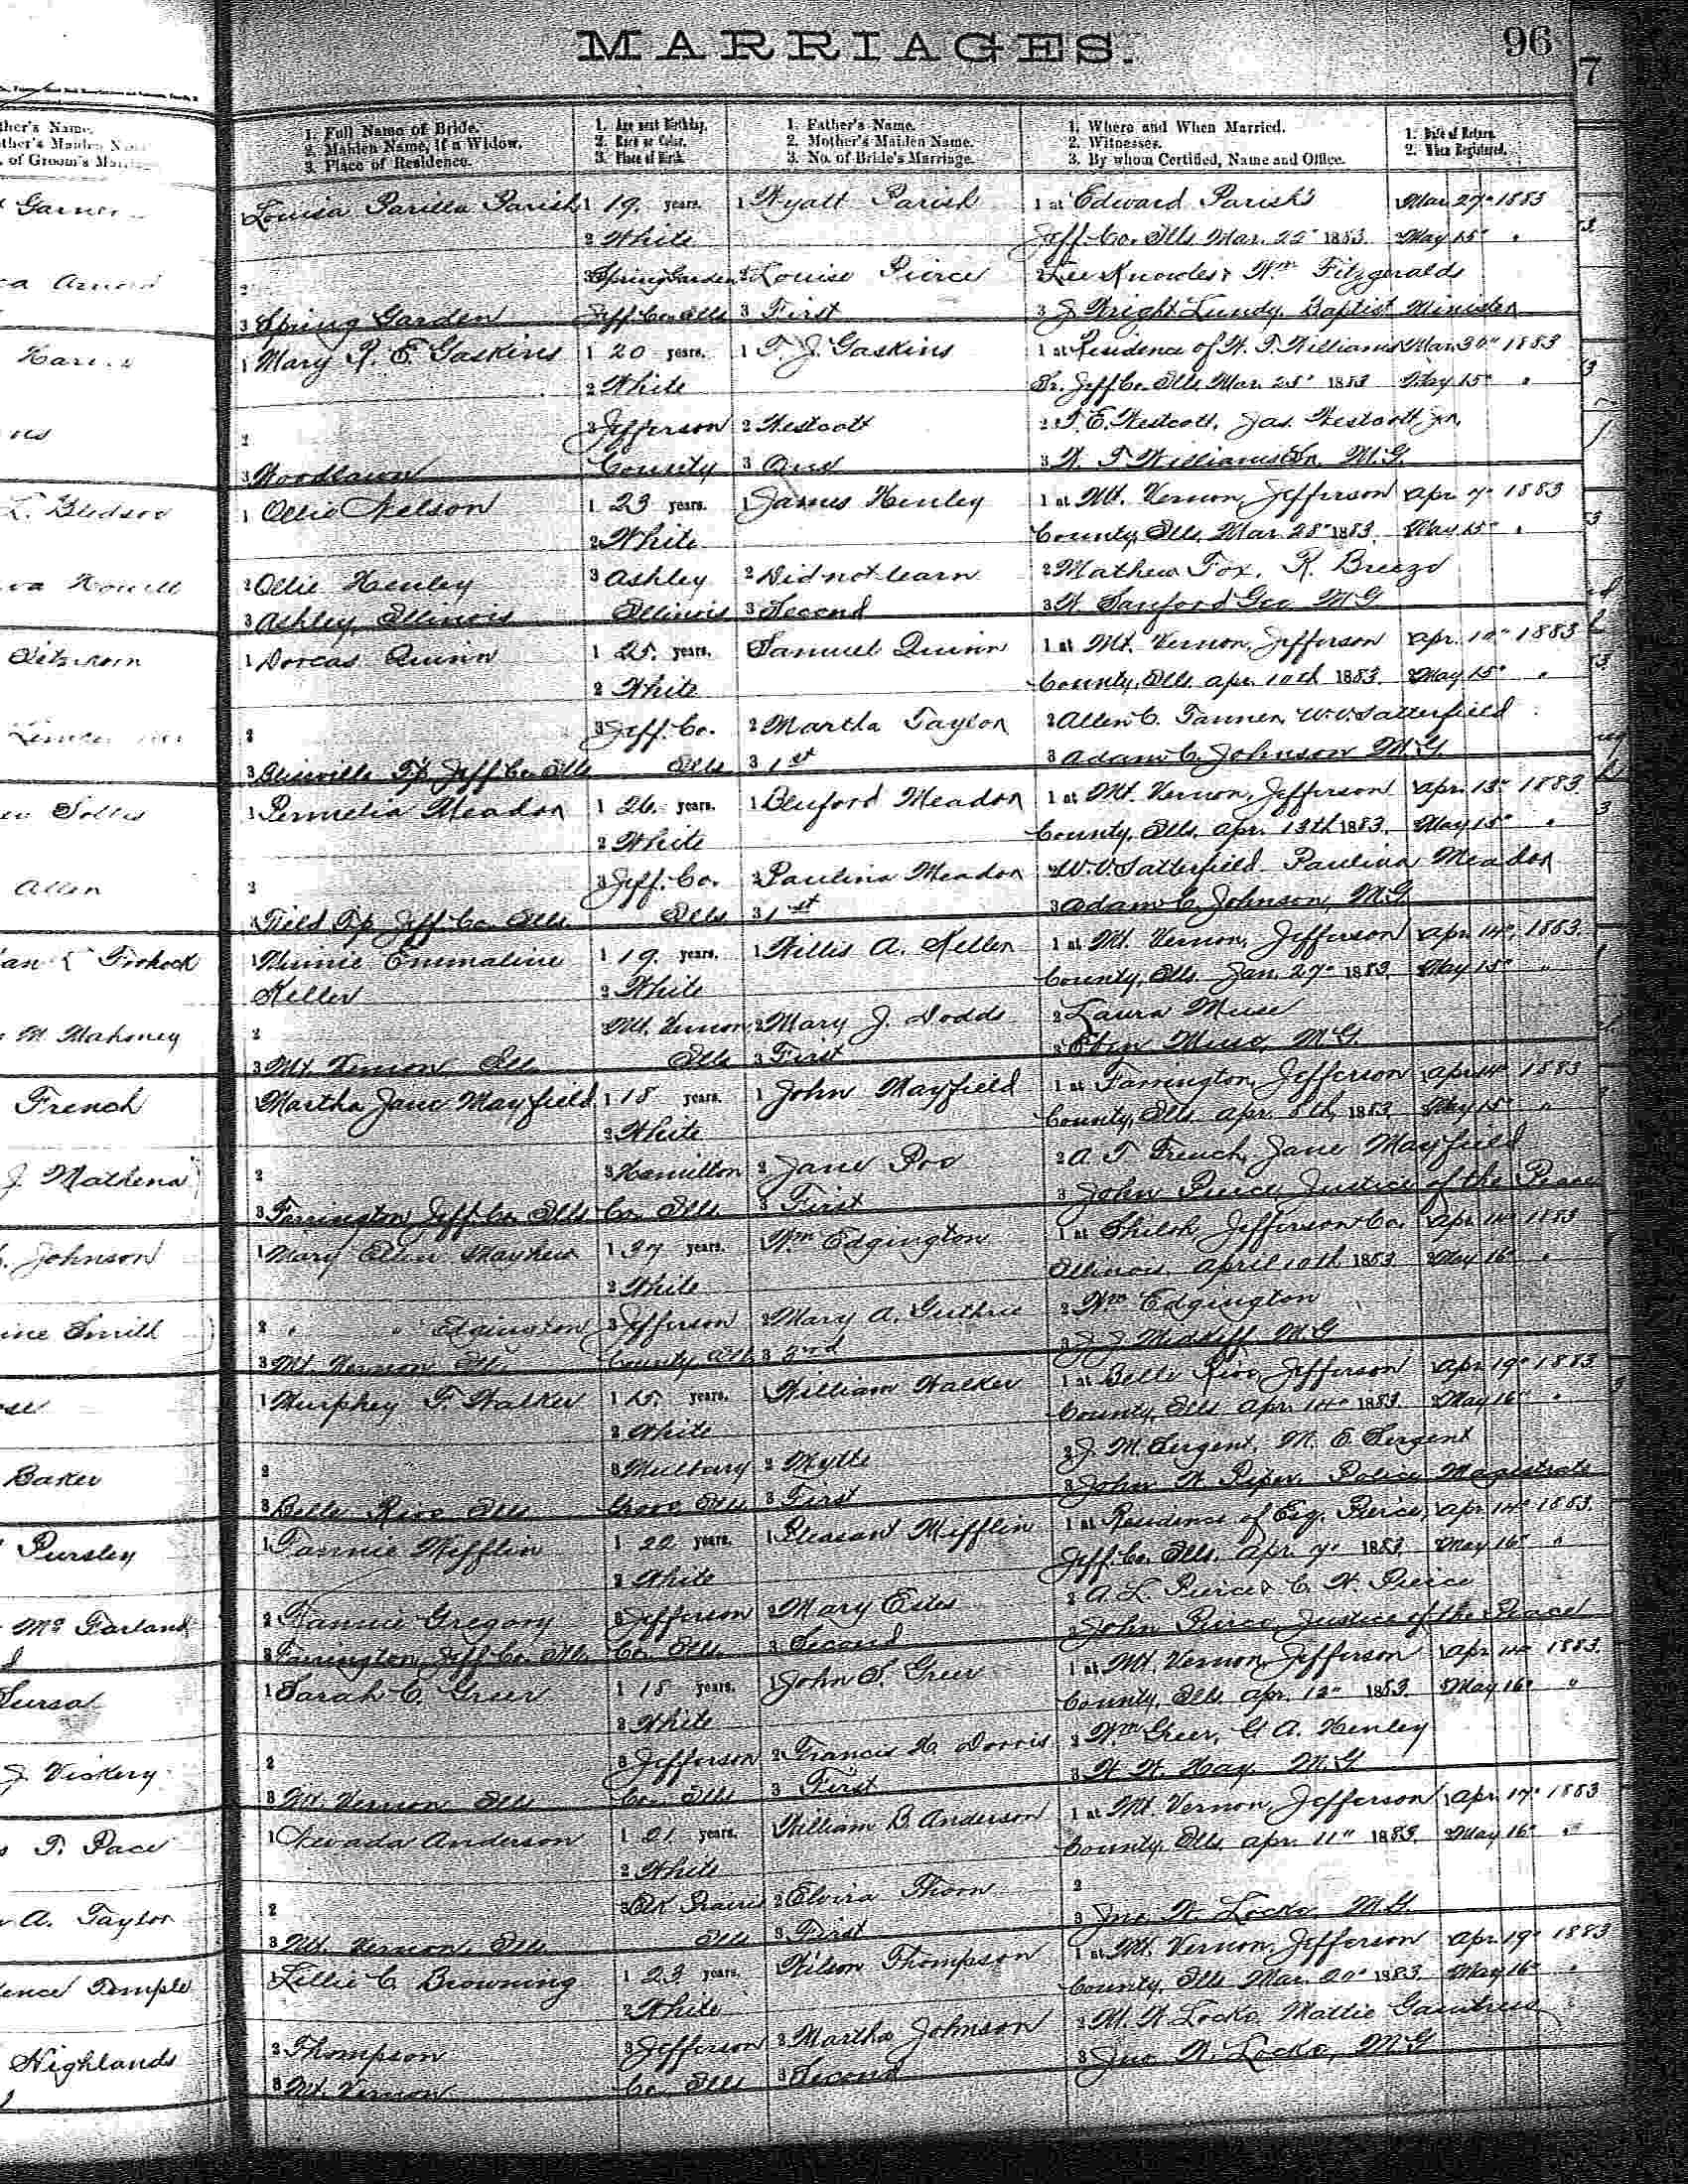 MARRIAGES.
96
1. Full Name of Bride.
2. Maiden Name, if a Widow.
3. Place of Residence.
1. Age next Birthday.
2. Race or Color.
3. Place of Birth.
1. Father's Name.
2. Mother's Maiden Name.
3. No. of Bride's Marriage.
1. Where and When Married.
2. Witnesses.
3. By whom Certified, Name and Office.
1. Date of Return.
2. When Registered.
Louisa Parilla Parish 1 19 years. 1 Wyatt Parish 1 at Edward Parish's Mar. 27" 1883
2 White Jeff. Co. Ills Mar. 1883 2 May 15" "
2 3 Spring Garden 2 Louisa Pierce 2 Lee Knowles & Wm Fitzgeralds
3 Spring Garden Jeff. Co. Ills 3 First 3 J Wright Lundy, Baptist Minister
1 Mary E. Gaskins 1 20 years. 1 T. J. Gaskins 1 at Residence of W. T. Williams Mar. 30" 1883
2 White Sr. Jeff Co. Ills Mar. 25" 1883 2 May 15" "
2 3 Jefferson 2 Westcott 2 T. E. Westcott, Jas. Westcott Jr.
3 Woodlawn County 3 One 3 W. T Williams Sr. M.G.
1 Ollie Nelson 1 23 years. 1 James Henley 1 at Mt. Vernon, Jefferson Apr. 7" 1883
2 White County, Ills, Mar. 28" 1883. May 15" "
2 Ollie Henley 3 Ashley 2 Did not learn 2 Mathew Fox, R. Breeze
3 Ashley, Illinois Illinois 3 Second 3 W. Sanford Gee M.G.
1 Dorcas Quinn 1 25 years. Samuel Quinn 1 at Mt. Vernon, Jefferson Apr. 1883
2 White County, Ills. Apr. 10th 1883. 2 May 15" "
2 3 Jeff. Co. 2 Martha Taylor 2 Allen C. Tanner, W.V. Satterfield
3 Blissville Tp. Jeff Co. Ills Ills 3 1st 3 Adam C. Johnson M.G.
1 Permelia Meador 1 26 years. 1 Benford Meador 1 at Mt. Vernon, Jefferson Apr. 13" 1883
2 White County, Ills. Apr. 13th 1883. May 15" "
2 3 Jeff. Co. 2 Paulina Meador 2 W.V. Satterfield Paulina Meador
3 Field Tp. Jeff. Co. Ills. Ills 3 1st 3 Adam C. Johnson, M.G.
1 Minnie Emmaline 1 19 years. 1 Willis A. Keller 1 at Mt. Vernon, Jefferson Apr. 14" 1883.
Keller 2 White County, Ills. Jan. 27" 1883. May 15" "
2 3 Mt. Vernon, 2 Mary J. Dodds 2 Laura Muse
3 Mt. Vernon Ills Ills 3 First 3 Eben Muse, M.G.
1 Martha Jane Mayfield 1 18 years. 1 John Mayfield 1 at Farrington, Jefferson Apr 14" 1883
2 White County, Ills. Apr. 8th, 1883 May 15" "
2 3 Hamilton 2 Jane Poe 2 A. T. French, Jane Mayfield
3 Farrington, Jeff. Co. Ills Co. Ills. 3 First 3 John Pierce, Justice of the Peace
1 Mary Ellen Mayhew 1 27 years. Wm Edgington 1 at Shiloh, Jefferson Co. Apr 14" 1883
2 White Illinois, April 10th 1883 2 May 16" "
2 " " Edgington 3 Jefferson 2 Mary A. Guthrie 2 Wm Edgington
3 Mt. Vernon Ills County Ills 3 3rd 3 J. J. Middiff M.G.
1 Murphey F. Walker 1 15 years. William Walker 1 at Belle Rive, Jefferson Apr. 19" 1883.
2 White County, Ills Apr. 14" 1883. 2 May 16" "
2 3 Mulbury 2 Mytte 2 J. M. Sergent, M. E. Sergent
3 Belle Rive Ills Grove Ills 3 First 3 John W. Piper, Police Magistrate
1 Fannie Mifflin 1 22 years. 1 Pleasant Mifflin 1 at Residence of Esq. Pierce, Apr. 14" 1883.
2 White Jeff. Co. Ills. Apr. 7" 1883 May 16" "
2 Fannie Gregory 3 Jefferson 2 Mary Estes 2 A. L. Pierce & C. W. Pierce
3 Farrington, Jeff Co. Ills. Co. Ills. 3 Second 3 John Pierce, Justice of the Peace
1 Sarah C. Greer 1 18 years. 1 John S. Greer 1 at Mt. Vernon, Jefferson Apr. 14" 1883.
2 White County, Ills. Apr. 12" 1883. May 16" "
2 3 Jefferson 2 Francis H. Dorris 2 Wm Greer, G. A. Henley
3 Mt. Vernon Ills Co. Ills 3 First 3 W. W. Hay M.G.
1 Nevada Anderson 1 21 years. William B. Anderson 1 at Mt. Vernon, Jefferson Apr. 17" 1883
2 White County, Ills Apr. 11" 1883. 2 May 16" "
2 3 Elk Prairie 2 Elvira Thorn 2
3 Mt. Vernon, Ills Ills 3 First 3 Jno. W. Locke M.G.
Lillie C. Browning 1 23 years. Wilson Thompson 1 at Mt. Vernon, Jefferson Apr. 19" 1883
2 White County, Ills Mar. 20" 1883. May 16" "
2 Thompson 3 Jefferson 2 Martha Johnson 2 M. W Locke, Mattie
3 Mt. Vernon Co. Ills 3 Second 3 Jno. W. Locke, M.G.
Garner
L. Bledsoe
Allen
Frohock
M. Mahoney
French
J. Mathena
Johnson
Smith
Baker
Pursley
McFarland
J. Vickery
T. Pace
A. Taylor
Temple
Highlands